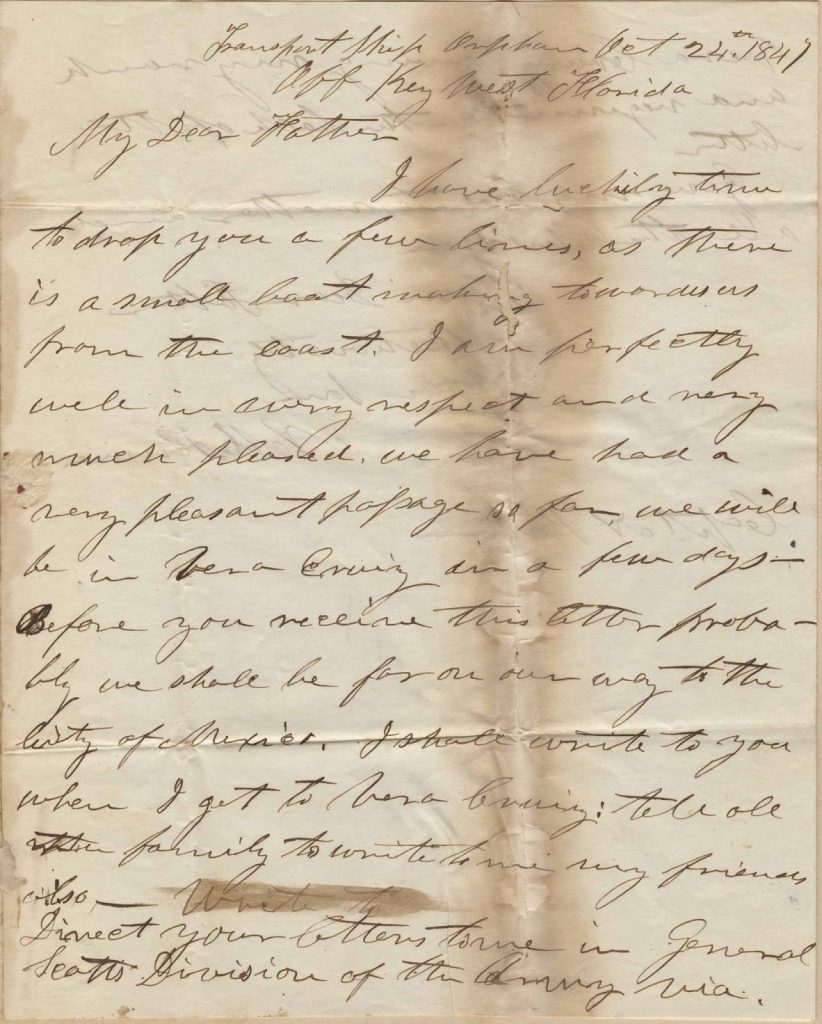 Transport Ship Orphan Oct 24th. 1847
Off Key West Florida
My Dear Father
I have luckily time
to drop you a few lines, as there
is a small boat making towards us
from the coast. I am perfectly
well in every respect and very
much pleased. we have had a
very pleasant passage so far, we will
be in Vera Cruiz in a few days –
Before you receive this letter proba–
bly we shall be far on our way to the
City of Mexico. I shall write to you
when I get to Vera Cruiz: tell all
the family to write to me my friends
also, – Write to
Direct your letters to me in General
Scotts Division of the Army via.